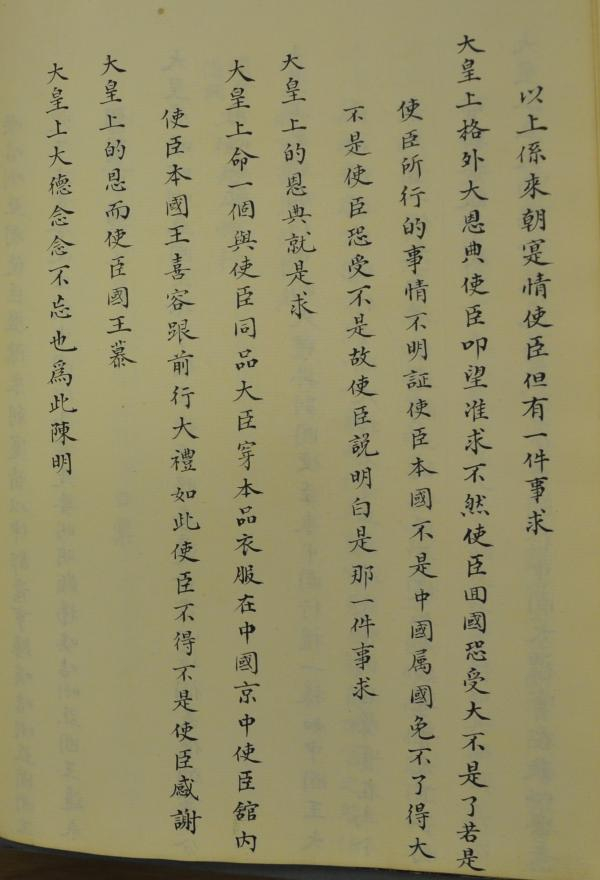 以上係來朝寔情使臣但有一件事求
大皇上格外大恩典使臣叩望准求不然使臣囬國恐受大不是了若是
使臣所行的事情不明証使臣本國不是中國属國免不了得大
不是使臣恐受不是故使臣説明白是那一件事求
大皇上的恩典就是求
大皇上命一個與使臣同品大臣穿本品衣服在中國京中使臣舘内
使臣本國王喜容跟前行大禮如此使臣不得不是使臣感謝
大皇上的恩而使臣國王慕
大皇上大德念念不忘也爲此陳明